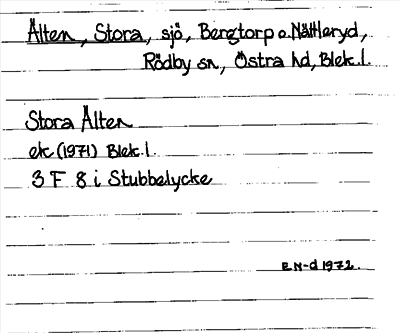 Ålten, Stora, sjö, Bergtorp o. Nättleryd,
Rödby sn, Östra hd, Blek. l.
Stora Ålten
ek (1971) Blek. l.
3 F 8 i Stubbelycke
EN-d 1972.